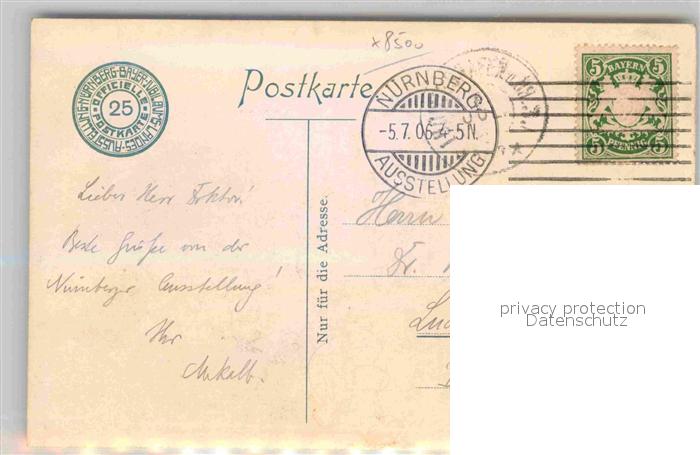 x8500
NÜRNBERG·BAYER·JUBILÄUMS·LANDES·AUSSTELLUNG
OFFICIELLE
25
POSTKARTE
Postkarte
NÜRNBERG
-5.7.06 4-5N.
AUSSTELLUNG
5 BAYERN 5
5 PFENNIG 5
Lieber Herr Doktor!
Beste Grüße von der
Nürnberger Ausstellung!
Ihr
Nur für die Adresse.
Herrn
Dr.
privacy protection
Datenschutz